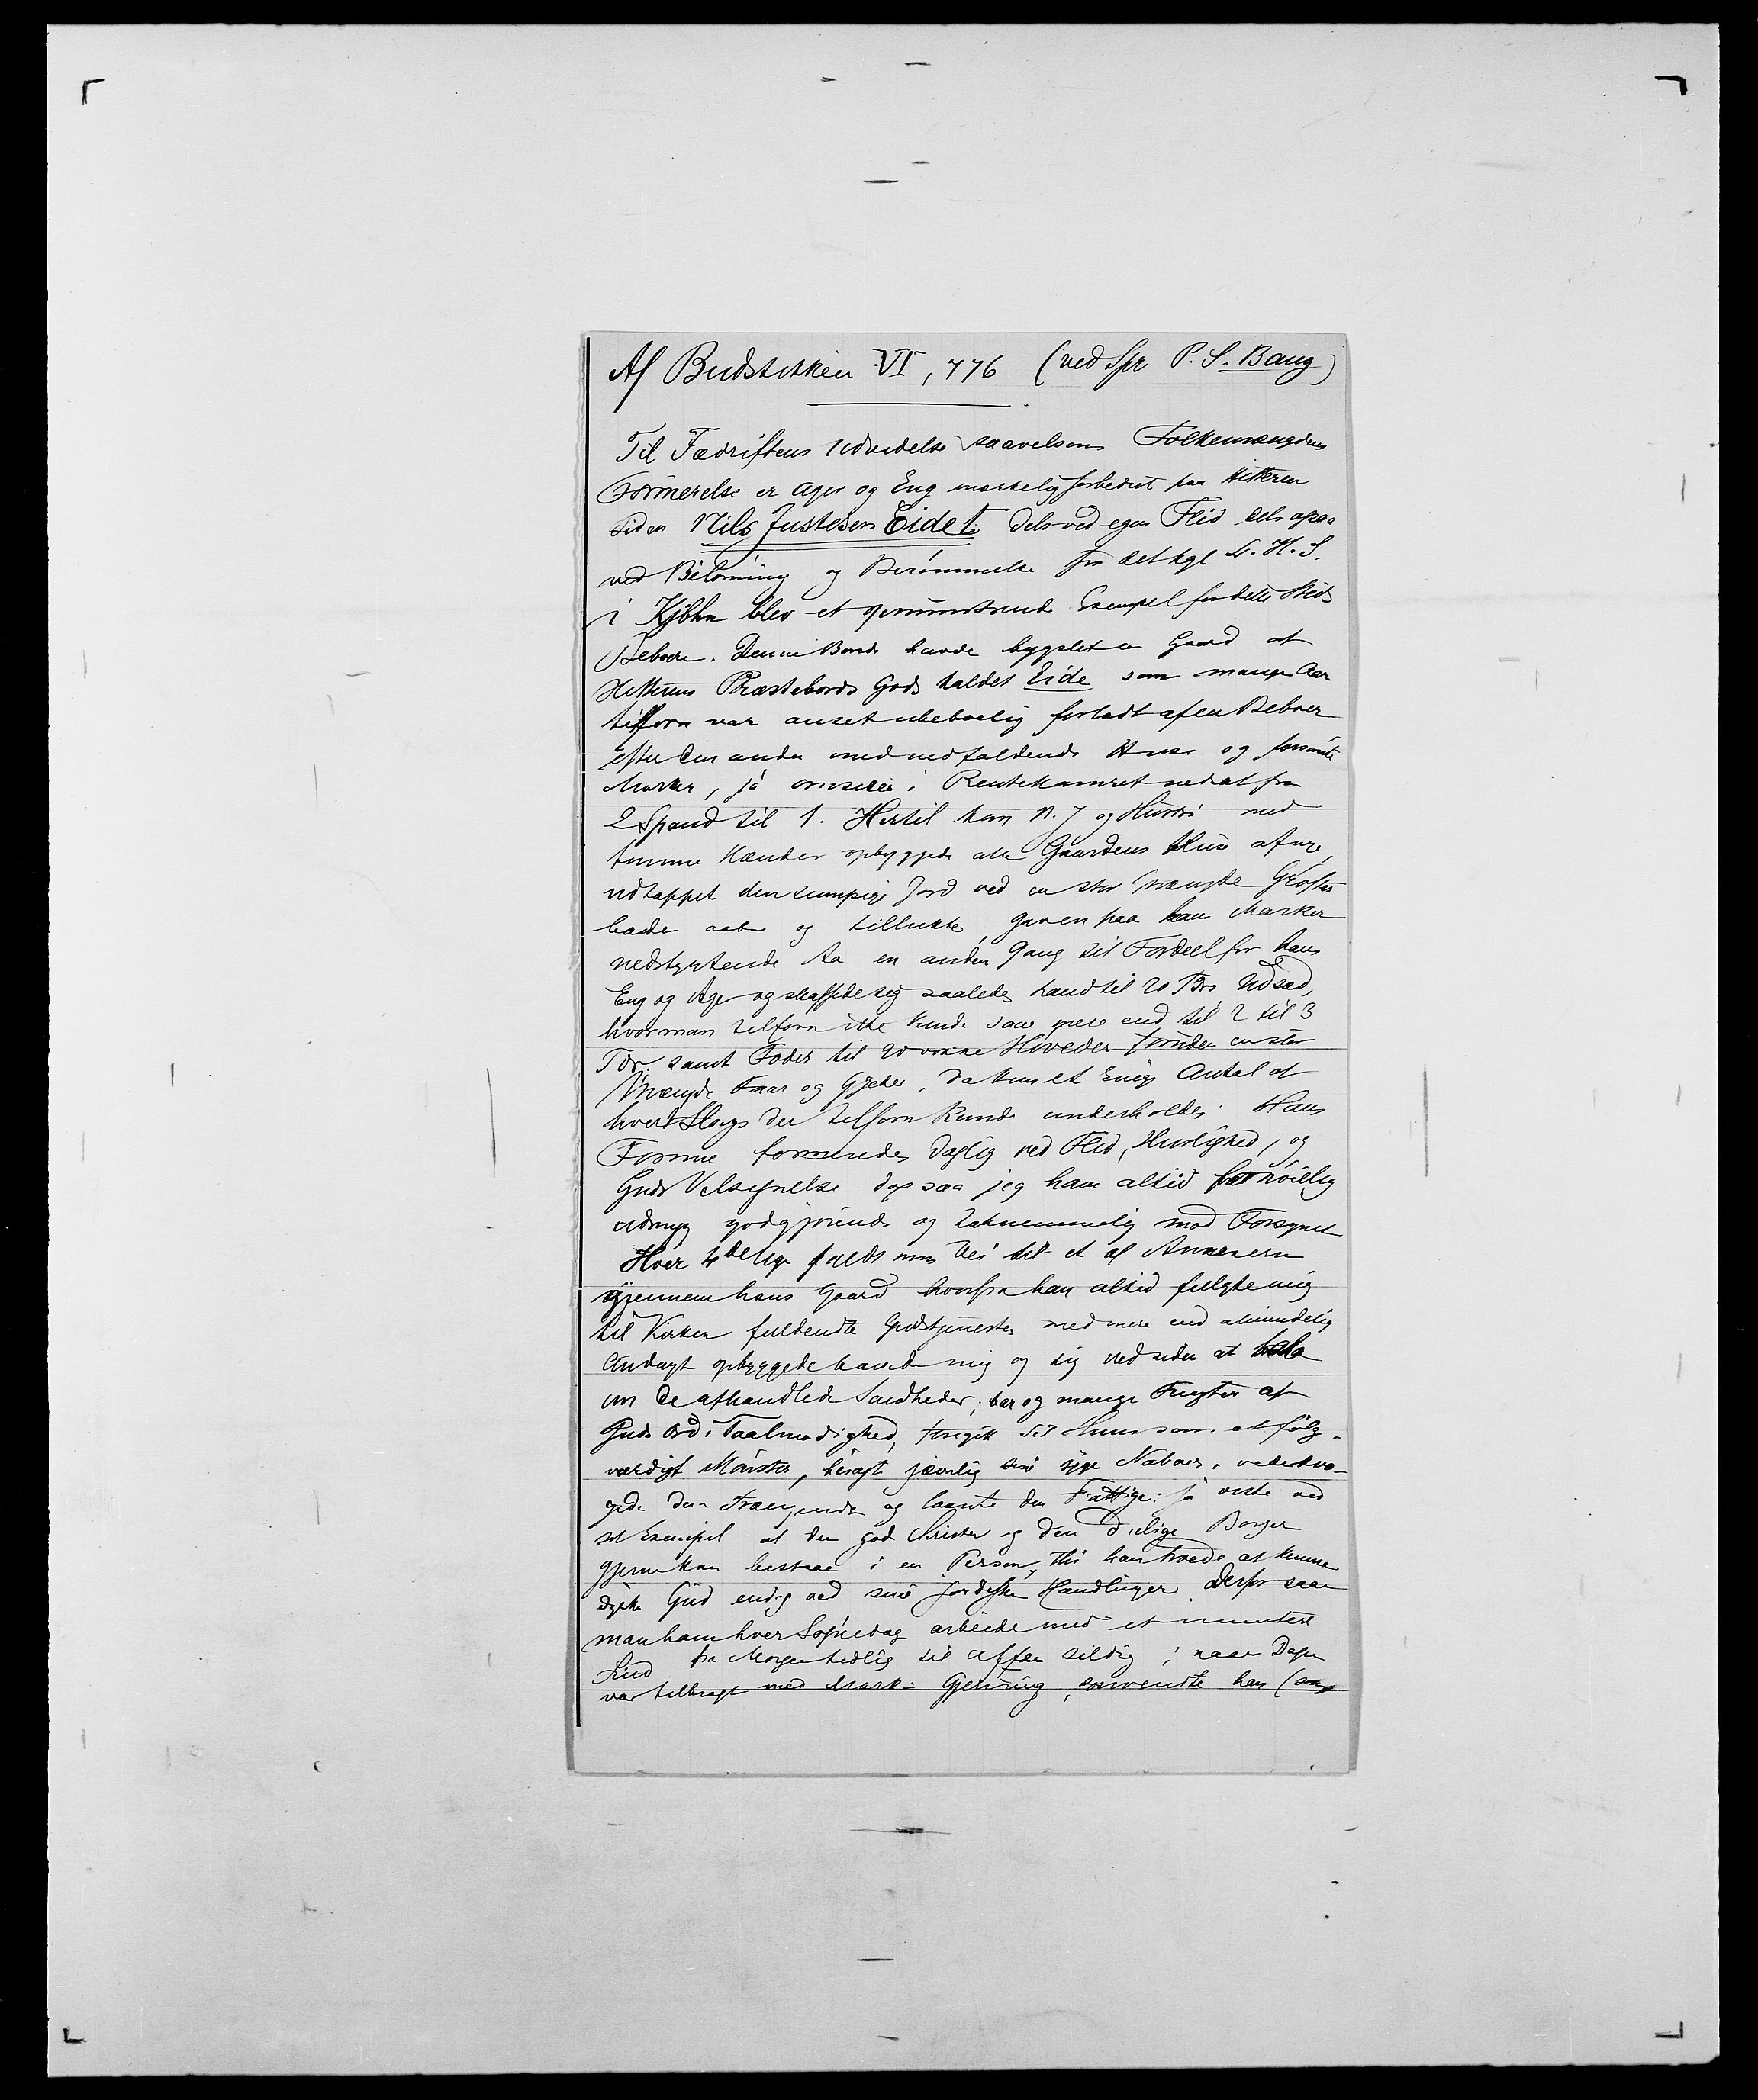 Af Budstikken VI, 776 (ved Spr P. S. Bang)
Til Fædriftens Udvidelse saavelsom Folkemængdens
Formerelse er Ager og Eng mærkelig forbedret paa Hitteren
siden Nils Justesen Eidet dels ved egen Flid dels ogsaa
ved Belønning og Berømmelse fra det kgl L. H. S.
i Kjbhn blev et opmuntrende Exempel for dette Steds
Beboere. Denne Bonde havde bygslet en Gaard af
Hitterens Præstebords Gods kaldet Eide som mange Aar
tilforn var anset ubeboelig forladt af en Beboer
efter den anden med nedfaldende Huse og forsømte
Marker, ja i Rentekamret nedsat fra
2 Spand til 1. Hertil kom N. J og Hustru med
tomme Hænder opbyggede alle Gaardens Huse af nye,
udtappet den sumpige Jord ved en stor Mængde Grøfter
baade aabne og tillukte, gav en paa hans Marker
nedstyrtende Aa en anden Gang til Fordeel for hans
Eng og Ager og skaffede sig saaledes Land til 20 Tdrs Udsæd,
hvor man tilforn ikke kunde saae mere end til 2 til 3
Tdr. samt Foder til 20 voxne Høveder foruden en stor
Mængde Faar og Gjeder, da kun et ringe Antal af
hvert Slags der tilforn kunde underholdes. Hans
Formue formeredes daglig ved Flid, Huslighed, og
Guds Velsignelse dog saa jeg ham altid fornøielig
ydmyg godgjørende og taknemmelig mod Forsynet
Hver 4de Uge faldt min Vei til et af Annexerne
gjennem hans Gaard hvorfra han altid fulgte mig
til Kirken fuldendte Gudstjenesten med mere end almindelig
Andagt opbyggede baade mig og sig ved siden at tale
om de afhandlede Sandheder; bar og mange Frugter af
Guds Ord i Taalmodighed, foregik sit Huus som et følg-
værdigt Mønster, besøgte jævnlig sine syge Naboer, vederkvæ-
gede den Trængende og laante den Fattige: ja viste ved
sit Exempel at den gode Christen og den duelige Borger
gjerne kan bestaae i en Person, thi han troede at kunne
dyrke Gud endog ved sine jordiske Handlinger Derfor saae
man ham hver Søgnedag arbeide med et muntert
Sind fra Morgen tidlig til Aften sildig; naar Dagen
var tilbragt med Mark-Gjerning, anvendte han (